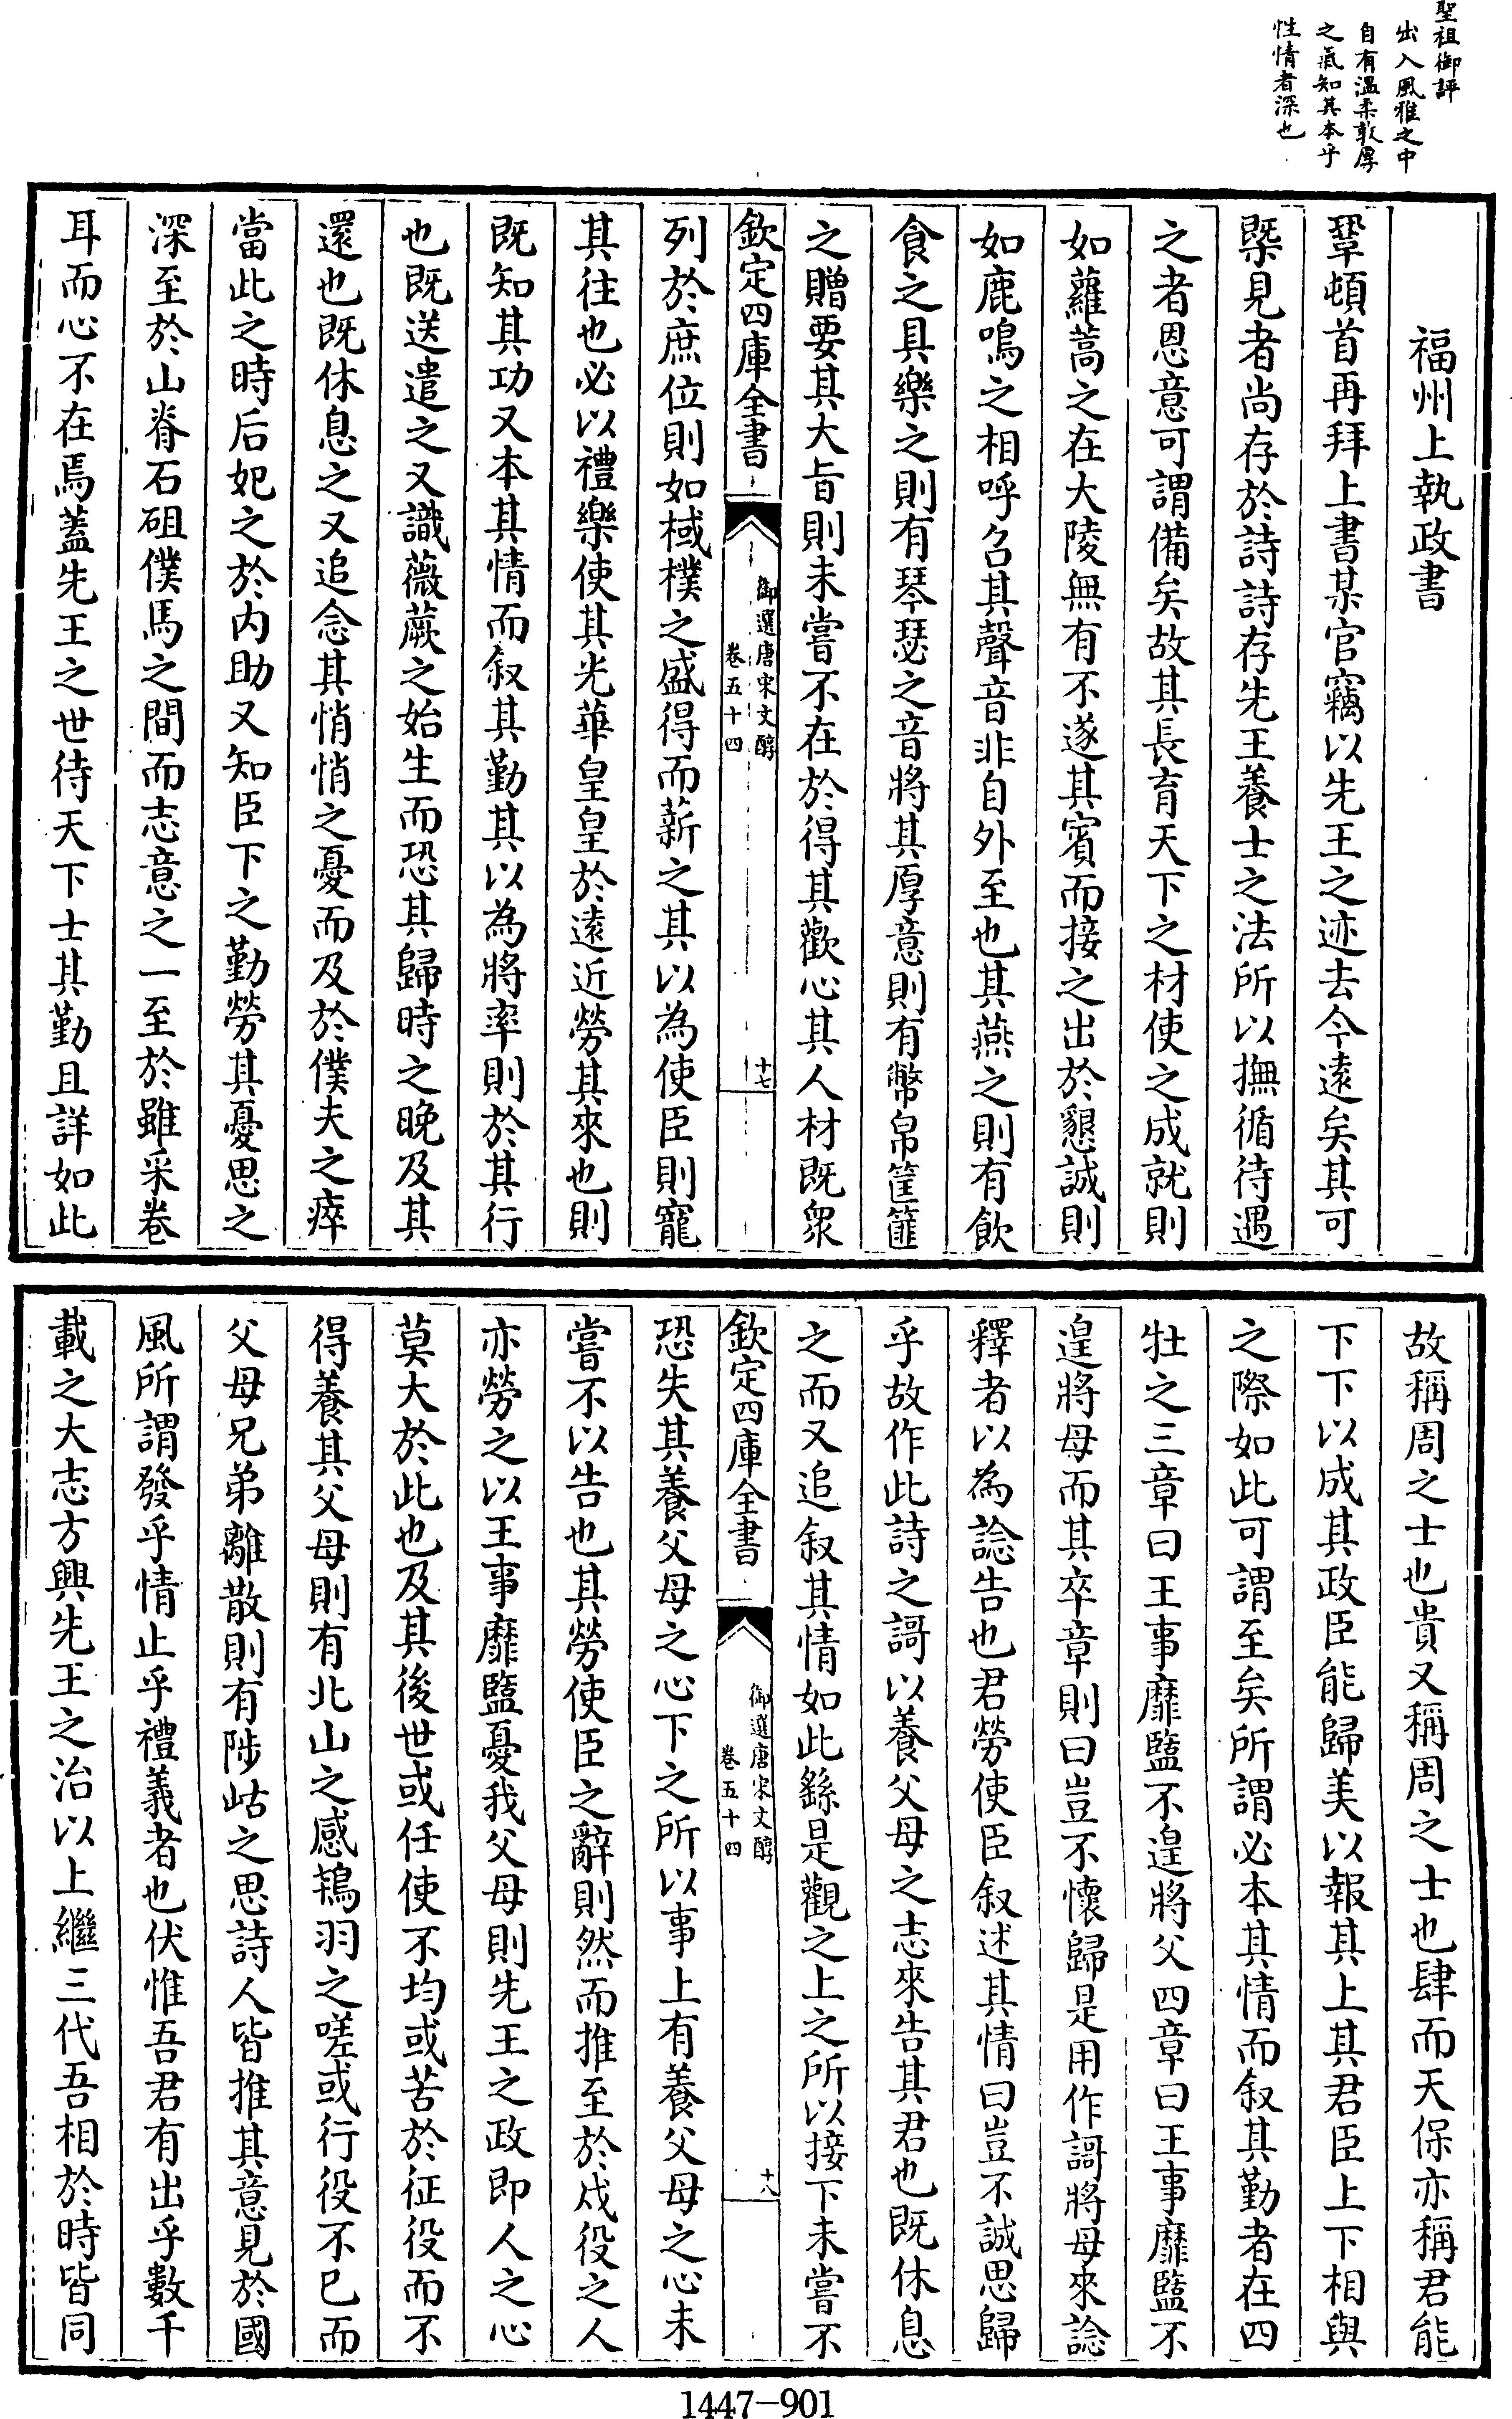 聖祖御評
出入風雅之中
自有溫柔敦厚
之氣知其本乎
性情者深也
福州上執政書
鞏頓首再拜上書某官竊以先王之迹去今遠矣其可
槩見者尚存於詩詩存先王養士之法所以撫循待遇
之者恩意可謂備矣故其長育天下之材使之成就則
如蘿蒿之在大陵無有不遂其賓而接之出於懇誠則
如鹿鳴之相呼召其聲音非自外至也其燕之則有飲
食之具樂之則有琴瑟之音將其厚意則有幣帛筐篚
之贈要其大旨則未嘗不在於得其歡心其人材既衆
欽定四庫全書
御選唐宋文醇
卷五十四
十七
列於庶位則如棫樸之盛得而薪之其以為使臣則寵
其往也必以禮樂使其光華皇皇於遠近勞其來也則
既知其功又本其情而叙其勤其以為將率則於其行
也既送遣之又識薇蕨之始生而恐其歸時之晚及其
還也既休息之又追念其悄悄之憂而及於僕夫之瘁
當此之時后妃之於内助又知臣下之勤勞其憂思之
深至於山脊石砠僕馬之間而志意之一至於雖采卷
耳而心不在焉蓋先王之世待天下士其勤且詳如此
故稱周之士也貴又稱周之士也肆而天保亦稱君能
下下以成其政臣能歸美以報其上其君臣上下相與
之際如此可謂至矣所謂必本其情而叙其勤者在四
牡之三章曰王事靡盬不遑將父四章曰王事靡盬不
遑將母而其卒章則曰豈不懷歸是用作謌將母來諗
釋者以為諗告也君勞使臣叙述其情曰豈不誠思歸
乎故作此詩之謌以養父母之志來告其君也既休息
之而又追叙其情如此繇是觀之上之所以接下未嘗不
欽定四庫全書
御選唐宋文醇
卷五十四
十八
恐失其養父母之心下之所以事上有養父母之心未
嘗不以告也其勞使臣之辭則然而推至於戍役之人
亦勞之以王事靡盬憂我父母則先王之政即人之心
莫大於此也及其後世或任使不均或苦於征役而不
得養其父母則有北山之感鴇羽之嗟或行役不已而
父母兄弟離散則有陟岵之思詩人皆推其意見於國
風所謂發乎情止乎禮義者也伏惟吾君有出乎數千
載之大志方興先王之治以上繼三代吾相於時皆同
1447-901